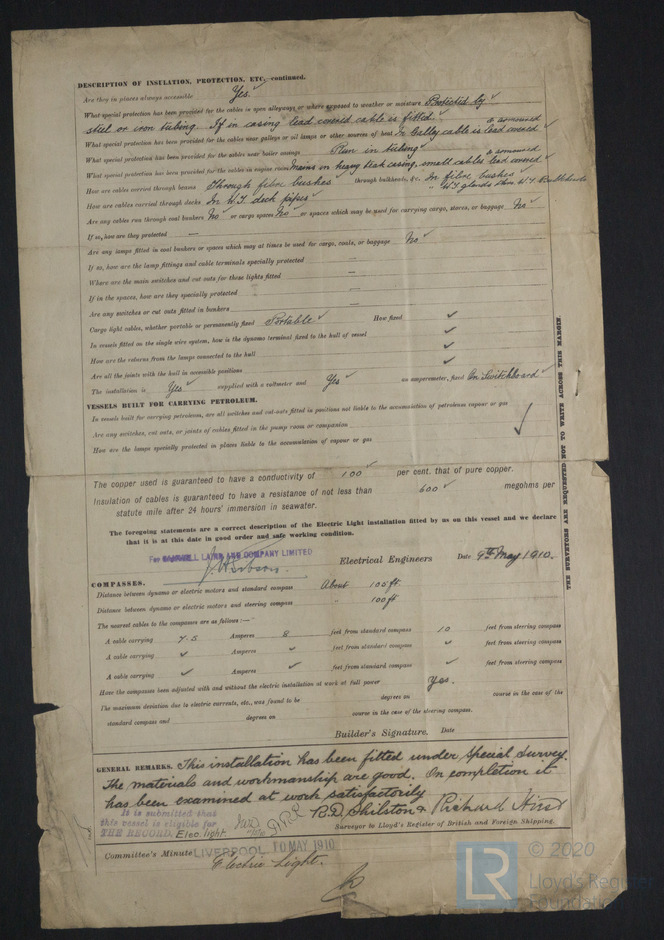 DESCRIPTION OF INSULATION, PROTECTION, ETC. continued.
Are they in places always accessible Yes. ✓
What special protection has been provided for the cables in open alleyways or where exposed to weather or moisture Protected by ✓
steel or iron tubing. If in casing lead covered cable is fitted. ✓
What special protection has been provided for the cables near galleys or oil lamps or other sources of heat In Galley cable is lead covered & armoured ✓
What special protection has been provided for the cables near boiler casings Run in tubing ✓
What special protection has been provided for the cables in engine room Mains in heavy teak casing, small cables lead covered & armoured ✓
How are cables carried through beams Through fibre bushes through bulkheads, &c. In fibre bushes ✓
How are cables carried through decks In W.T. deck pipes ✓ " W.T. glands thro W.T. Bulkheads
Are any cables run through coal bunkers No ✓ or cargo spaces No ✓ or spaces which may be used for carrying cargo, stores, or baggage No ✓
If so, how are they protected —
Are any lamps fitted in coal bunkers or spaces which may at times be used for cargo, coals, or baggage No ✓
If so, how are the lamp fittings and cable terminals specially protected —
Where are the main switches and cut outs for these lights fitted —
If in the spaces, how are they specially protected —
Are any switches or cut outs fitted in bunkers —
Cargo light cables, whether portable or permanently fixed Portable ✓ How fixed ✓
In vessels fitted on the single wire system, how is the dynamo terminal fixed to the hull of vessel ✓
How are the returns from the lamps connected to the hull ✓
Are all the joints with the hull in accessible positions ✓
The installation is Yes ✓ supplied with a voltmeter and Yes ✓ an amperemeter, fixed On Switchboard ✓
VESSELS BUILT FOR CARRYING PETROLEUM.
In vessels built for carrying petroleum, are all switches and cut-outs fitted in positions not liable to the accumulation of petroleum vapour or gas
Are any switches, cut outs, or joints of cables fitted in the pump room or companion ✓
How are the lamps specially protected in places liable to the accumulation of vapour or gas
THE SURVEYORS ARE REQUESTED NOT TO WRITE ACROSS THIS MARGIN.
The copper used is guaranteed to have a conductivity of 100 ✓ per cent. that of pure copper.
Insulation of cables is guaranteed to have a resistance of not less than 600 ✓ megohms per
statute mile after 24 hours' immersion in seawater.
The foregoing statements are a correct description of the Electric Light installation fitted by us on this vessel and we declare
that it is at this date in good order and safe working condition.
For CAMMELL LAIRD AND COMPANY LIMITED
Electrical Engineers Date 9th May 1910.
COMPASSES.
Distance between dynamo or electric motors and standard compass About 105 ft.
Distance between dynamo or electric motors and steering compass " 100 ft
The nearest cables to the compasses are as follows:—
A cable carrying 7.5 Amperes 8 feet from standard compass 10 feet from steering compass
A cable carrying ✓ Amperes ✓ feet from standard compass ✓ feet from steering compass
A cable carrying ✓ Amperes ✓ feet from standard compass ✓ feet from steering compass
Have the compasses been adjusted with and without the electric installation at work at full power Yes.
The maximum deviation due to electric currents, etc., was found to be degrees on course in the case of the
standard compass and degrees on course in the case of the steering compass.
Builder's Signature. Date
GENERAL REMARKS. This installation has been fitted under special survey.
The materials and workmanship are good. On completion it
has been examined at work satisfactorily
It is submitted that
this vessel is eligible for
THE RECORD. Elec. light.
R.D. Shilston & Richard Hirst
Surveyor to Lloyd's Register of British and Foreign Shipping.
Committee's Minute LIVERPOOL 10 MAY 1910
Electric Light.
LR © 2020
Lloyd's Register
Foundation